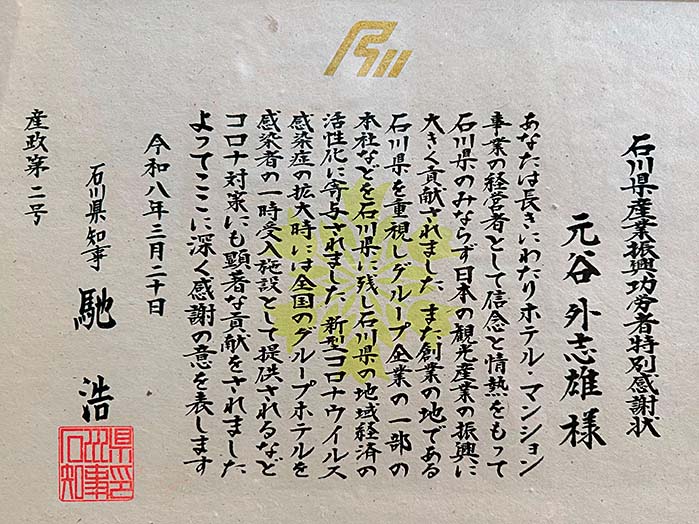 石川県産業振興功労者特別感謝状
元谷 外志雄 様
あなたは長きにわたりホテル・マンション
事業の経営者として信念と情熱をもって
石川県のみならず日本の観光産業の振興に
大きく貢献されました また創業の地である
石川県を重視しグループ企業の一部の
本社などを石川県に残し石川県の地域経済の
活性化に寄与されました 新型コロナウイルス
感染症の拡大時には全国のグループホテルを
感染者の一時受入施設として提供されるなど
コロナ対策にも顕著な貢献をされました
よってここに深く感謝の意を表します
令和八年三月二十日
石川県知事 馳 浩
県印
川事
石知
産政第二号